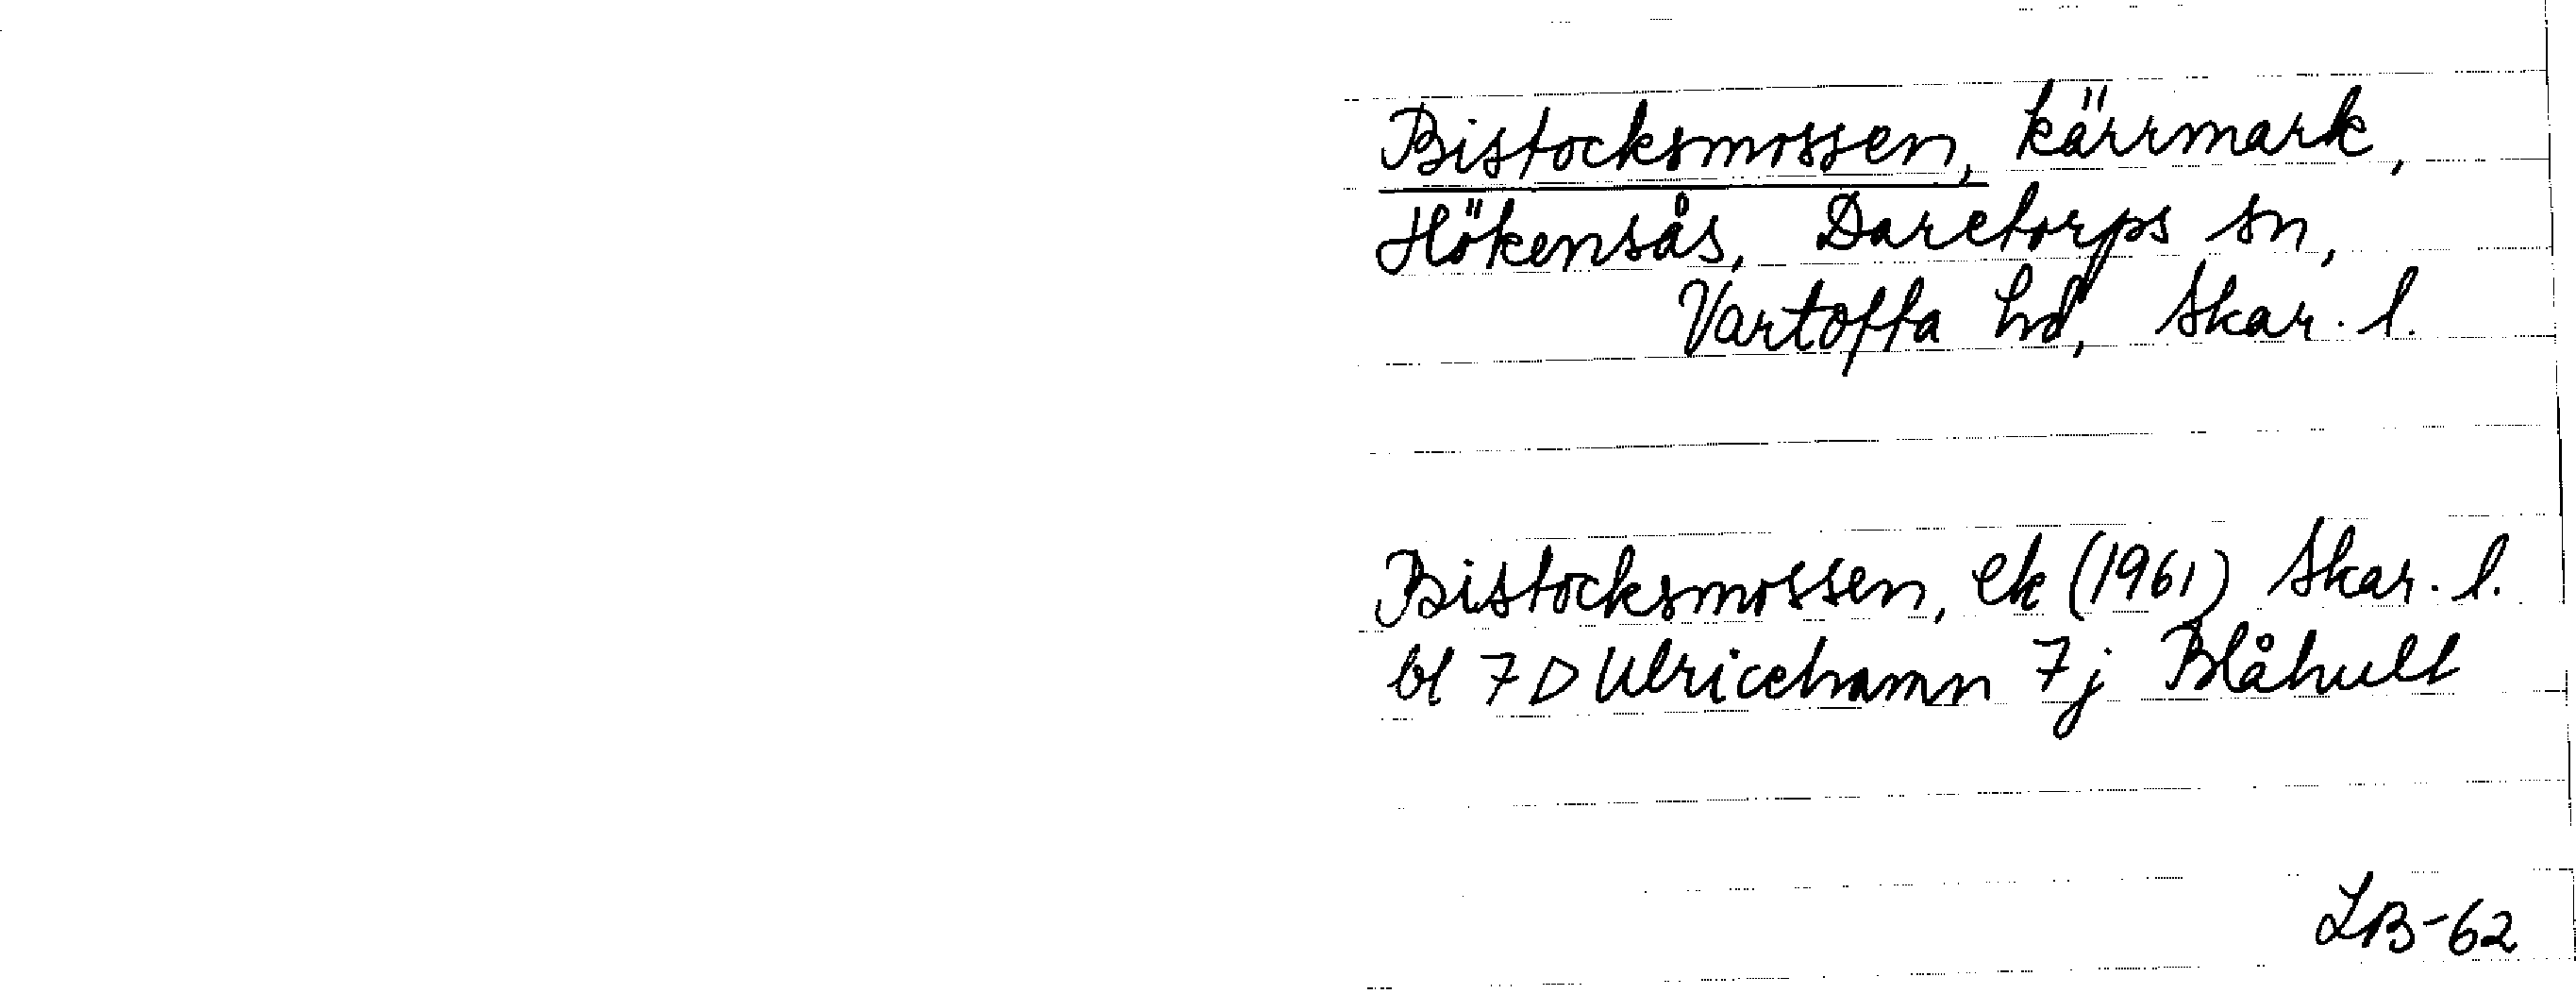 Bistocksmossen, kärrmark,
Hökensås, Daretorps sn,
Vartofta hd, Skar. l.
Bistocksmossen, ek (1961) Skar. l.
bl 7 D Ulricehamn 7j Blåhult
LB-62